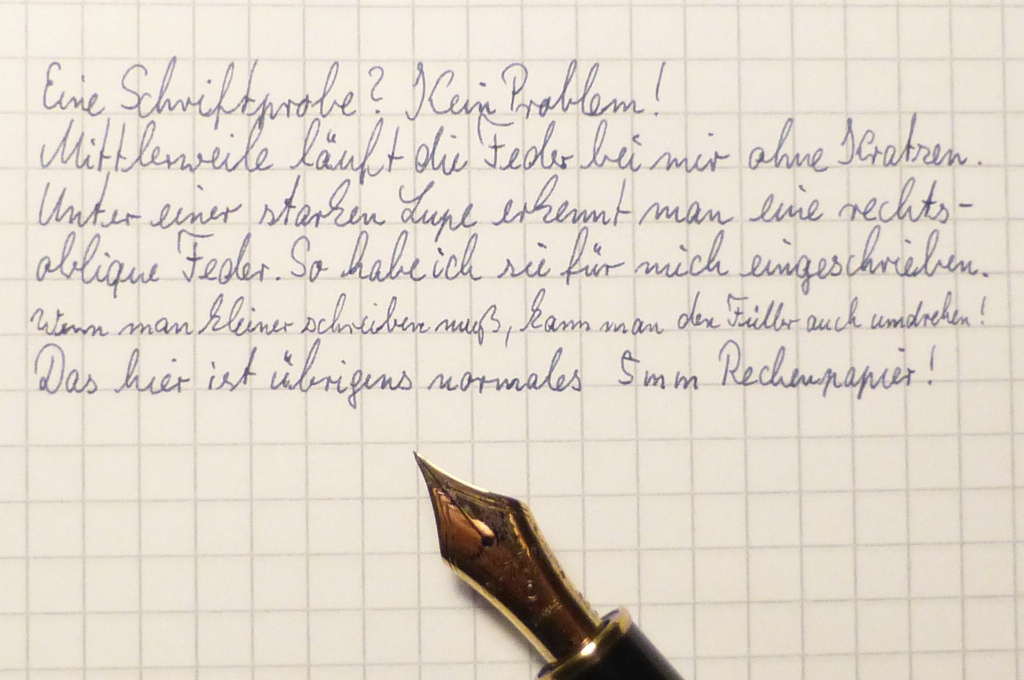 Eine Schriftprobe? Kein Problem!
Mittlerweile läuft die Feder bei mir ohne Kratzen.
Unter einer starken Lupe erkennt man eine rechts-
oblique Feder. So habe ich sie für mich eingeschrieben.
Wenn man kleiner schreiben muß, kann man den Füller auch umdrehen!
Das hier ist übrigens normales 5mm Rechenpapier!